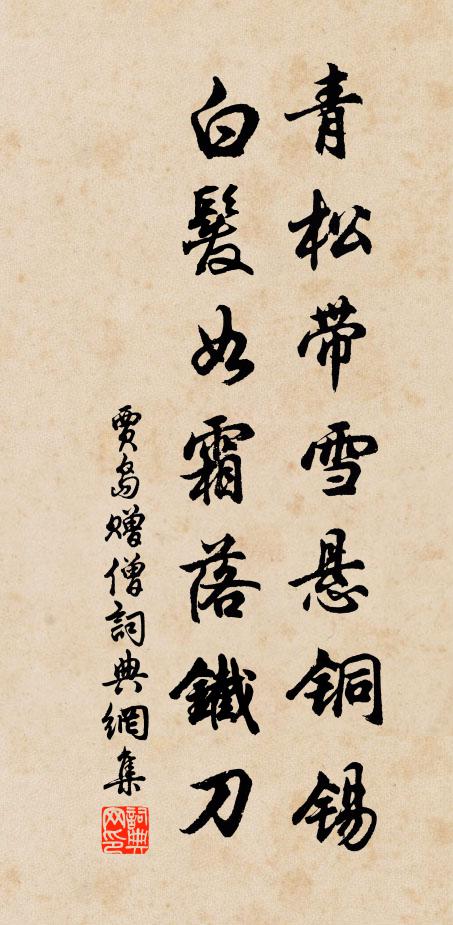 青松带雪悬铜锡
白髮如霜落鐵刀
賈島赠僧詞典網集
詞典网印